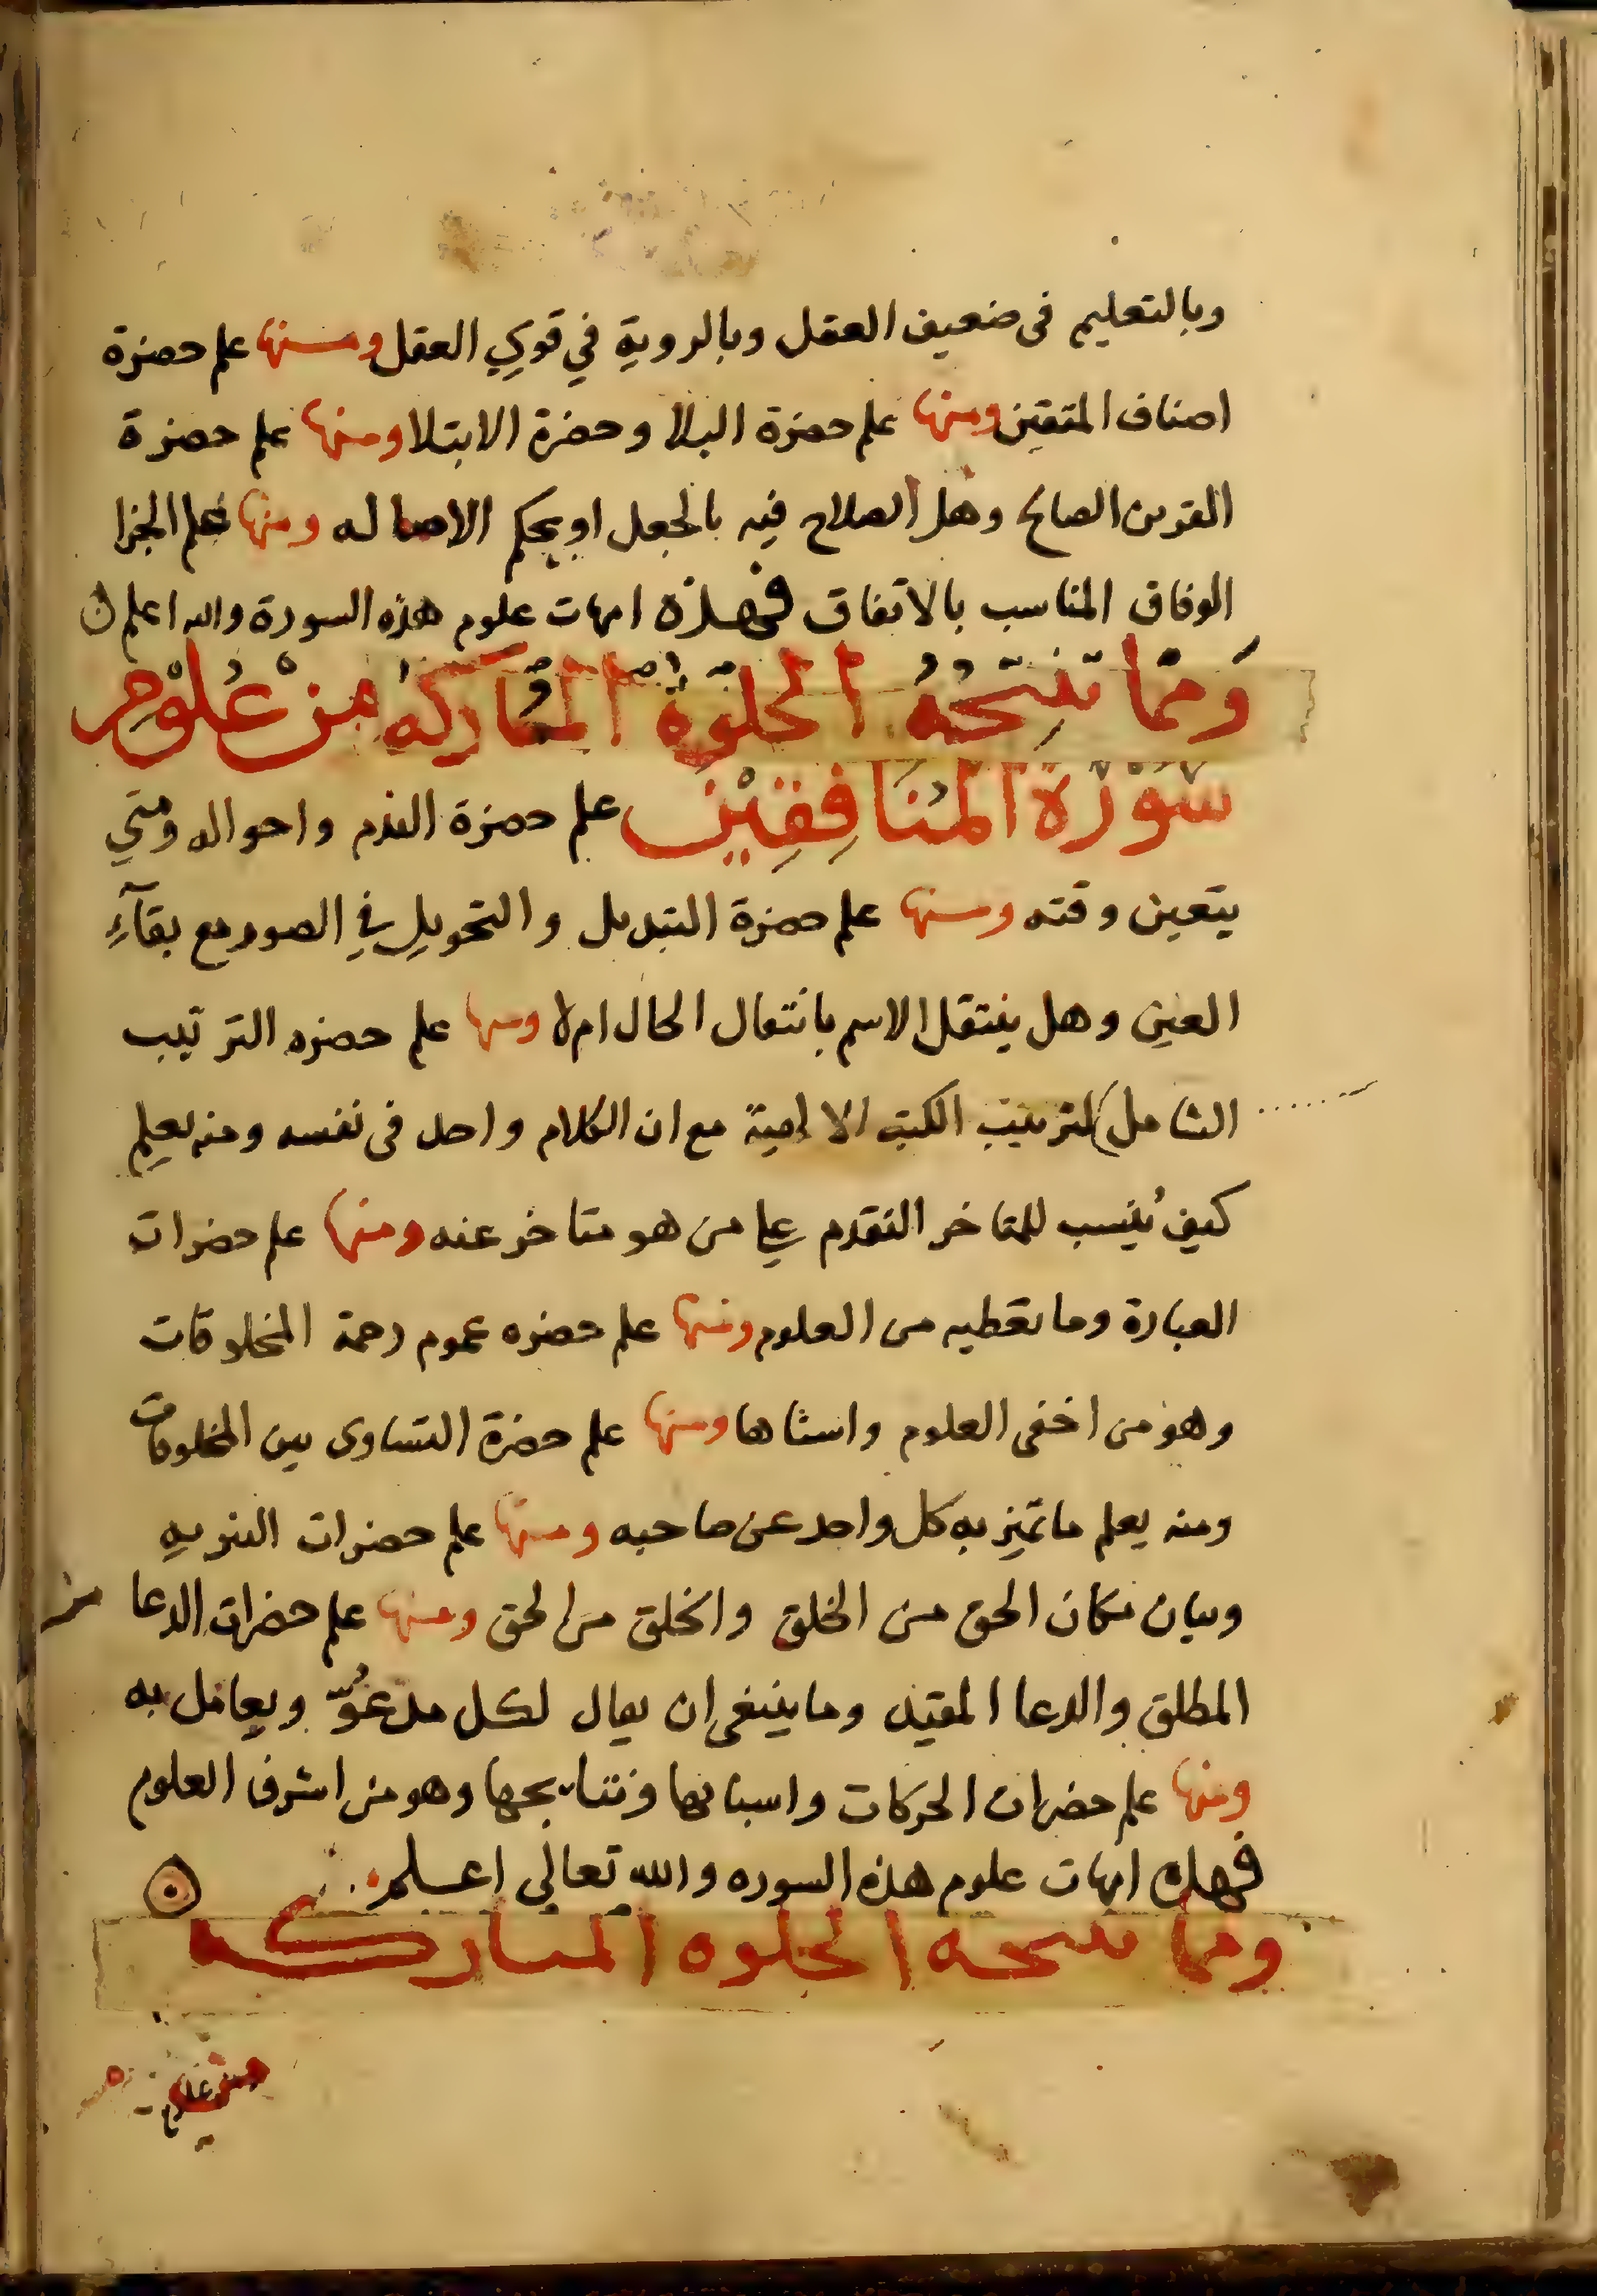 وبالتعليم فى ضعيف العقل وبالروية في قوي العقل ومنها علم حضرة
اصناف المتقين ومنها علم حضرة البلا وحضرة الابتلا ومنها علم حضرة
القرين الصالح وهل الصلاح فيه بالجعل او بحكم الاصاله ومنها علم الجزا
الوفاق المناسب بالاتفاق فهذه امهات علوم هذه السورة والله اعلم
وَممَّا تنتِجُهُ الخلوَةُ المُبَاركَةُ مِنْ عُلُوْمِ
سُوْرَةِ المُنَافِقِيْنَ علم حضرة الندم واحواله ومتي
يتعين وقته ومنها علم حضرة التبديل والتحويل في الصور مع بقآءِ
العين وهل ينتقل الاسم بانتقال الحال ام لا ومنها علم حضره الترتيب
الشامل لترتيب الكتب الالهية مع ان الكلام واحد فى نفسه ومنه يعلم
كيف يُنسب للمتاخر التقدم علي من هو متاخر عنه ومنها علم حضرات
العبارة وما تعطيه من العلوم ومنها علم حضره عموم رحمة المخلوقات
وهو من اخفى العلوم واسناها ومنها علم حضرة التساوى بين المخلوقات
ومنه يعلم ما تميز به كل واحد عن صاحبه ومنها علم حضرات التنزيه
وبيان مكان الحق من الخلق والخلق من الحق ومنها علم حضرات الدعا
المطلق والدعا المقيد وما ينبغى ان يقال لكل مدعوّ ويعامل به
ومنها علم حضرات الحركات واسبابها ونتايجها وهو من اشرف العلوم
فهذه امهات علوم هذه السوره والله تعالي اعلم
ومما تنتجه الخلوه المباركه
من علوم